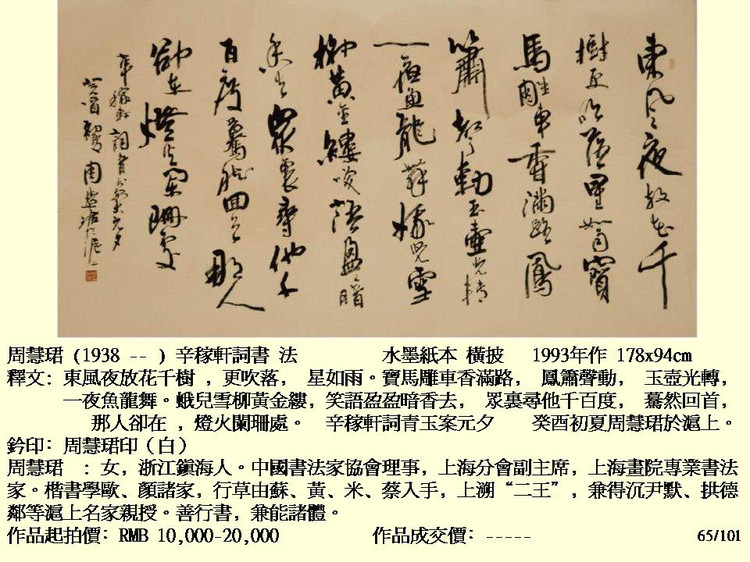 東風夜放花千
樹更吹落星如雨寶
馬雕車香滿路鳳
簫聲動玉壺光轉
一夜魚龍舞蛾兒雪
柳黃金縷笑語盈盈暗
香去眾裏尋他千
百度驀然回首那人
卻在燈火闌珊處
辛稼軒詞青玉案元夕
癸酉初夏周慧珺於滬上
周慧珺 (1938 -- ) 辛稼軒詞書 法 水墨紙本 橫披 1993年作 178x94cm
釋文: 東風夜放花千樹 , 更吹落, 星如雨。寶馬雕車香滿路, 鳳簫聲動, 玉壺光轉,
一夜魚龍舞。蛾兒雪柳黃金縷, 笑語盈盈暗香去, 眾裏尋他千百度, 驀然回首,
那人卻在 , 燈火闌珊處。 辛稼軒詞青玉案元夕 癸酉初夏周慧珺於滬上。
鈐印: 周慧珺印 (白)
周慧珺 : 女, 浙江鎮海人。中國書法家協會理事, 上海分會副主席, 上海畫院專業書法
家。楷書學歐、顏諸家, 行草由蘇、黃、米、蔡入手, 上溯 “二王” , 兼得沉尹默、拱德
鄰等滬上名家親授。善行書, 兼能諸體。
作品起拍價: RMB 10,000-20,000 作品成交價: -----
65/101